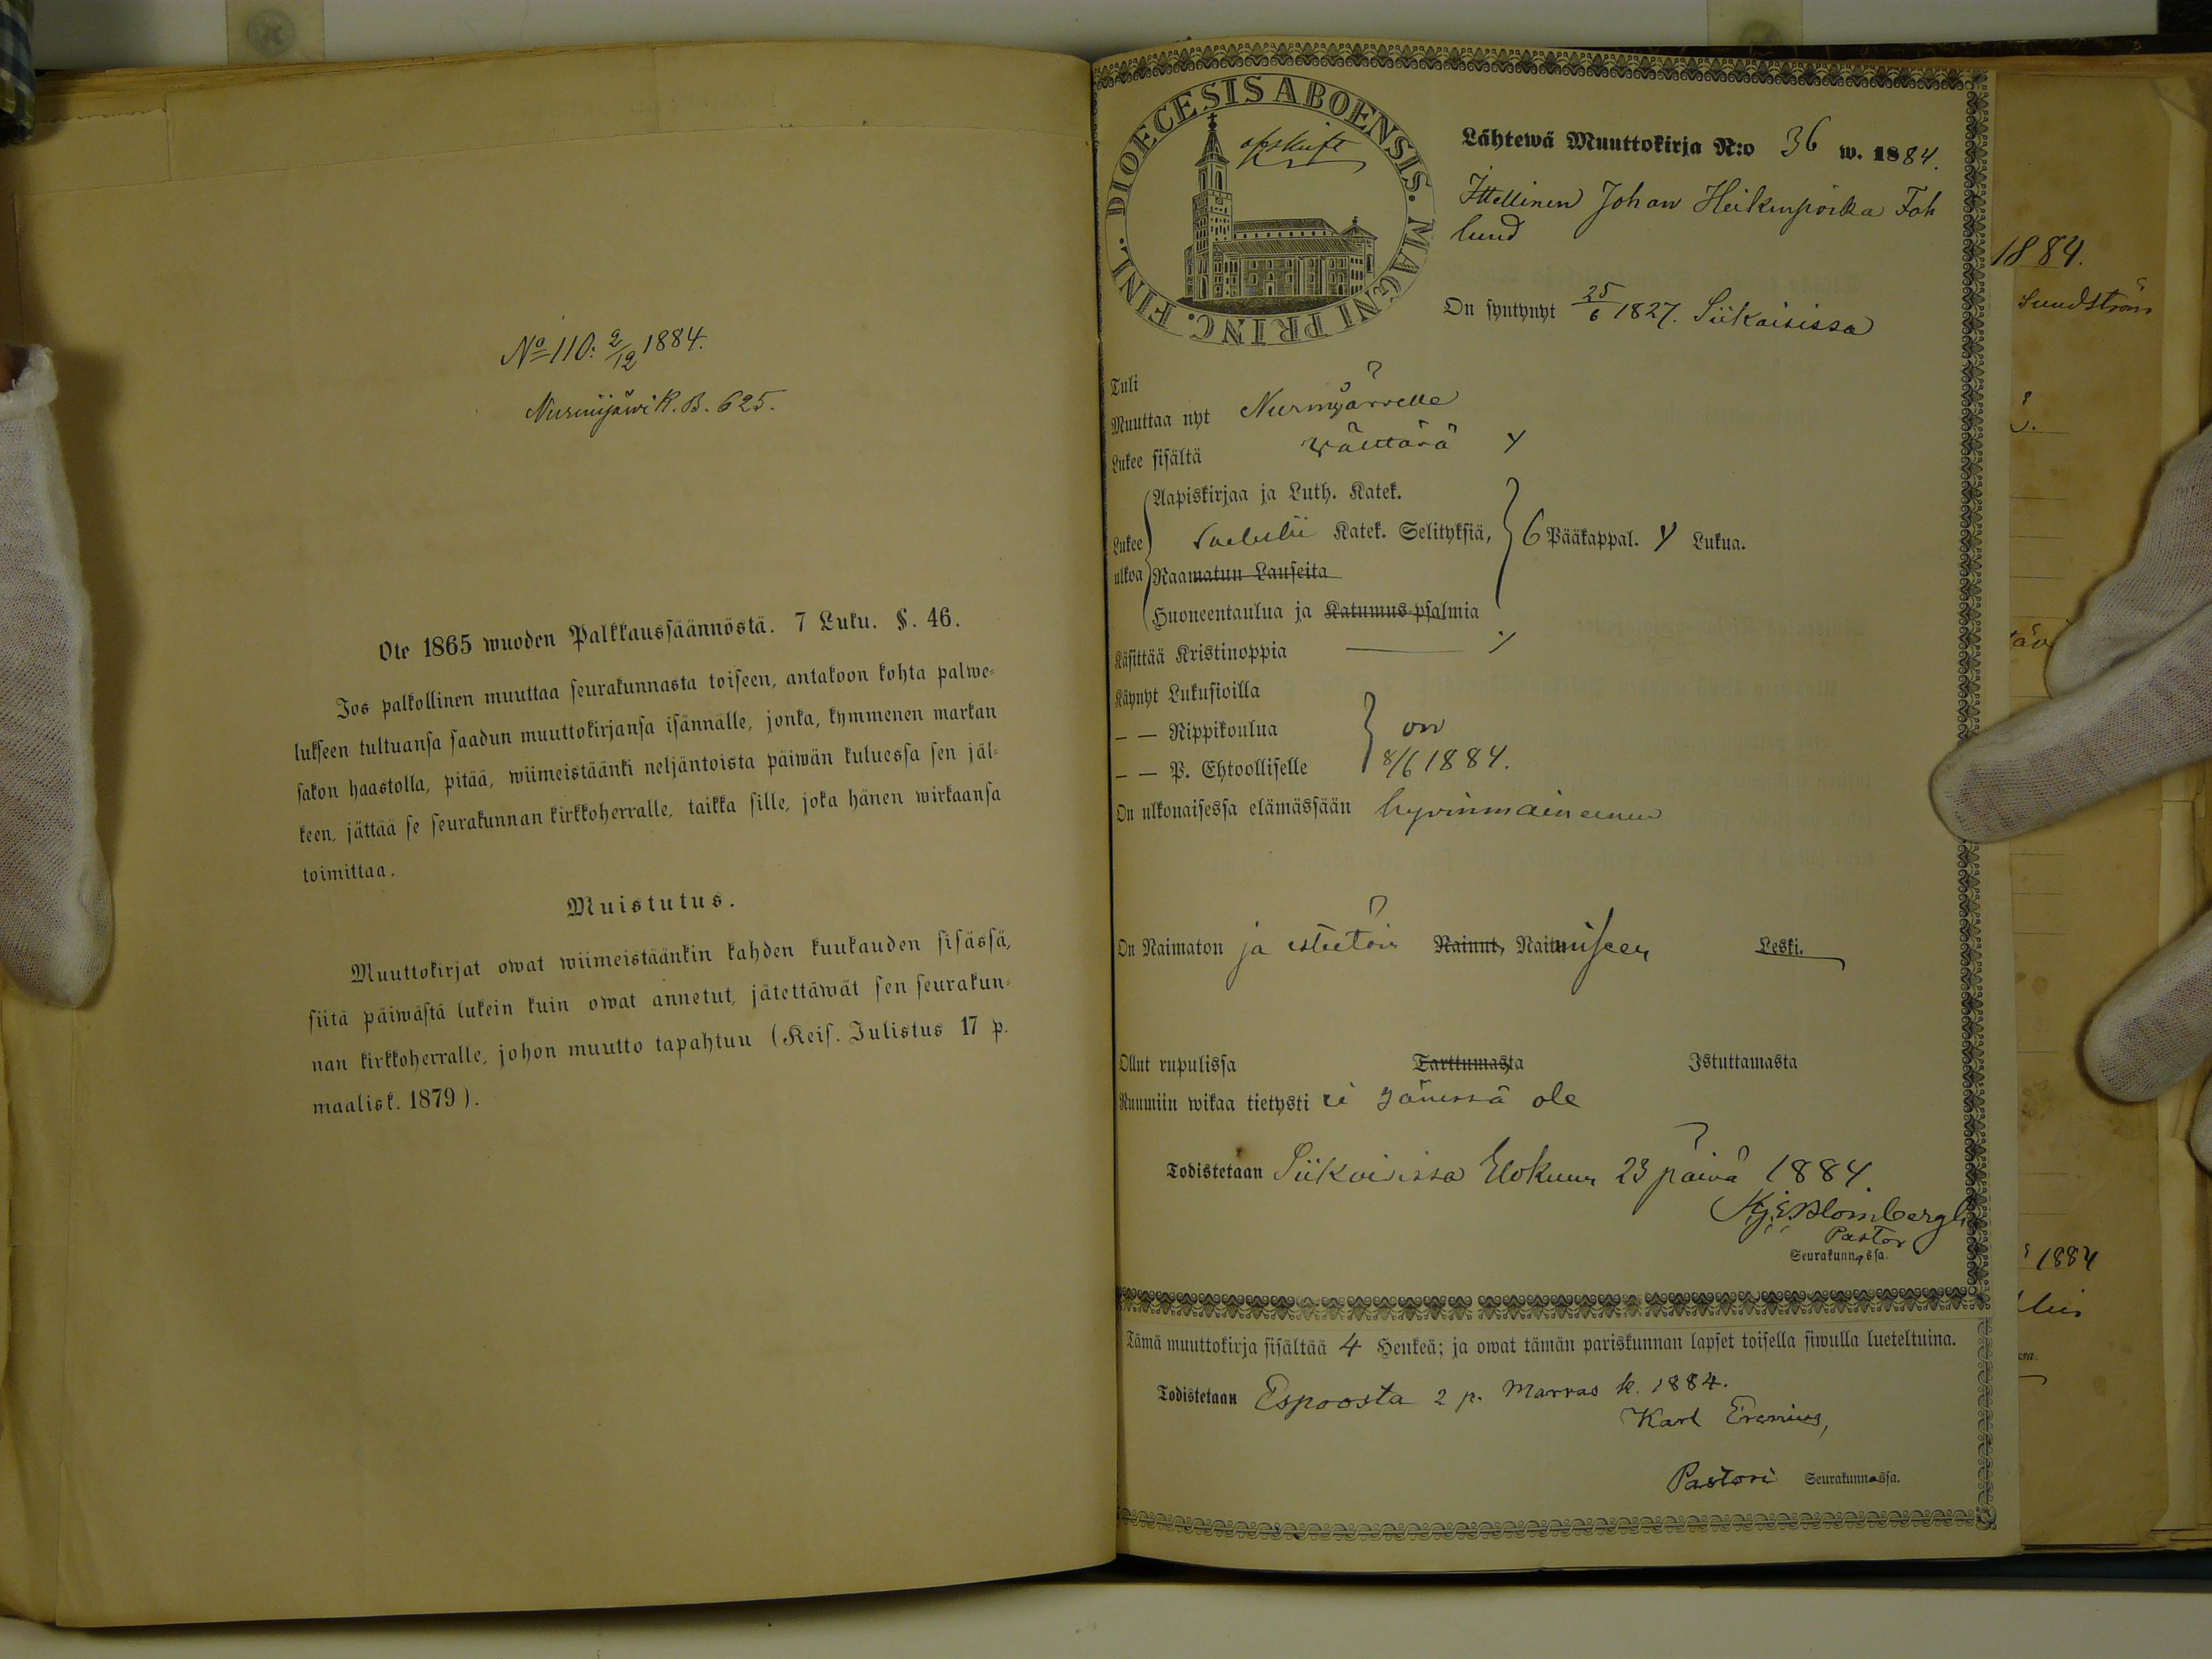 No 110: 2/12 1884.
Nurmijärvi K. B. 625.
Ote 1865 wuoden Palkkaussäännöstä. 7 Luku. §. 46.
Jos palkollinen muuttaa seurakunnasta toiseen, antakoon kohta palwe-
lukseen tultuansa saadun muuttokirjansa isännälle, jonka, kymmenen markan
sakon haastolla, pitää, wiimeistäänki neljäntoista päiwän kuluessa sen jäl-
keen, jättää se seurakunnan kirkkoherralle, taikka sille, joka hänen wirkaansa
toimittaa.
Muistutus.
Muuttokirjat owat wiimeistäänkin kahden kuukauden sisässä,
siitä päiwästä lukein kuin owat annetut, jätettäwät sen seurakun-
nan kirkkoherralle, johon muutto tapahtuu (Keis. Julistus 17 p.
maalisk. 1879).
DIOECESIS ABOENSIS. MAGNI PRINC. FINL.
afskrift
Lähtewä Muuttokirja N:o 36 w. 1884.
Ittellinen Johan Heikinpoika Fok
lund
On syntynyt 25/6 1827. Siikaisissa
Tuli
Muuttaa nyt Nurmijärvelle
Lukee sisältä välttävä
Lukee ulkoa
Aapiskirjaa ja Luth. Katek.
Katek. Selityksiä, 6 Pääkappal. Lukua.
Raamatun Lauseita
Huoneentaulua ja Katumus-psalmia
Käsittää Kristinoppia
Käynyt Lukusioilla
— — Rippikoulua on
— — P. Ehtoolliselle 8/6 1884.
On ulkonaisessa elämässään hyvinmaineinen
On Naimaton ja esteetöin Nainut, Naimiseen Leski.
Ollut rupulissa Tarttumasta Istuttamasta
Ruumiin wikaa tietysti ei hänessä ole
Todistetaan Siikaisissa Elokuun 23 päivä 1884.
Blombergh
Pastor
Seurakunnassa.
Tämä muuttokirja sisältää 4 Henkeä; ja owat tämän pariskunnan lapset toisella siwulla lueteltuina.
Todistetaan Espoosta 2 p. Marras k. 1884.
Karl
Pastori Seurakunnassa.
1884.
Sundström
1884